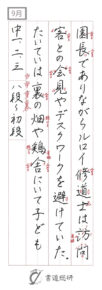 9月
園長でありながらルロイ修道士は訪問
客との会見やデスクワークを避けていた。
たいていは裏の畑や鶏舎にいて子ども
中、一、二、三 八段〜初段
書道総研